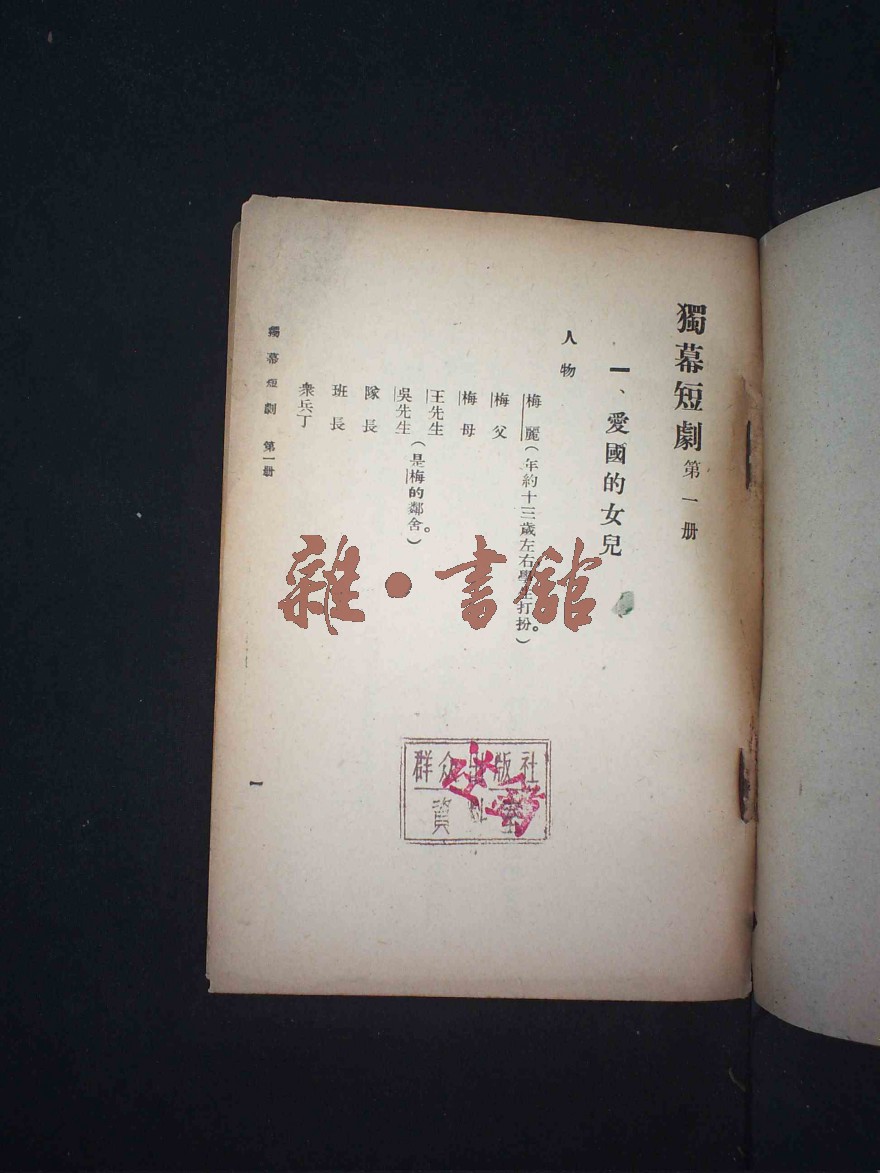 獨幕短劇 第一册
一、愛國的女兒
人物
梅麗(年約十三歲左右學生打扮。)
梅父
梅母
王先生
吳先生(是梅的鄰舍。)
隊長
班長
衆兵丁
獨幕短劇 第一册
一
雜·書舘
群众出版社
資料室